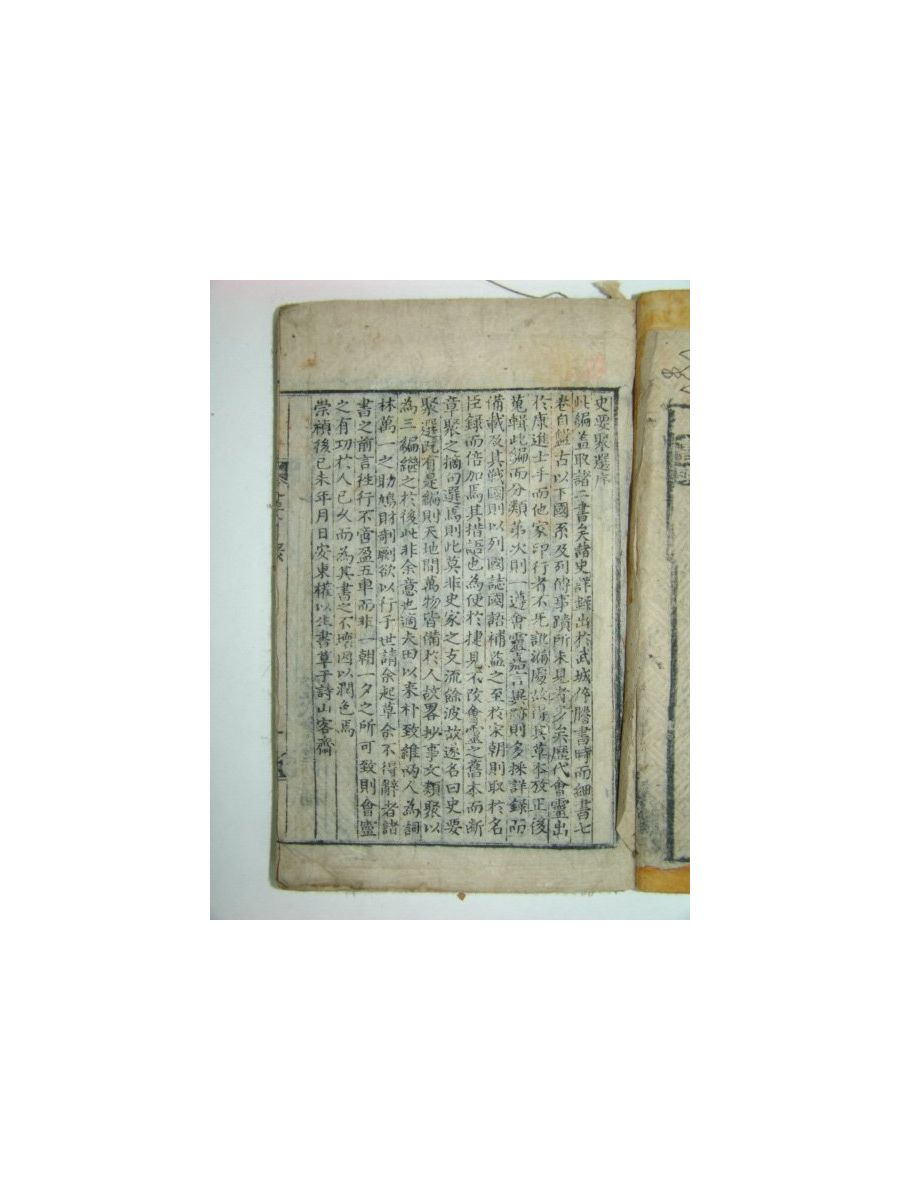 史要聚選序
此編盖取諸二書矣諸史詳錄出於武城倅謄書時而細書七
卷自盤古以下國系及列傳事蹟所未見者多矣歷代會靈出
於康進士手而他家印行者不免訛漏處故考正後
蒐輯此編而分類第次則一遵會靈茄言異跡則多採詳錄而
備載及其戰國則以列國誌國語補益之至於宋朝則取於名
臣錄而倍加焉其措語也為便於捷見不改會靈之舊本而斷
章聚之摘句選焉則此莫非史家之支流餘波故遂名曰史要
聚選既有是編則天地間萬物皆備於人故畧抄事文類聚以
為三編繼之於後此非余意也適大田以來朴致維兩人為詞
林萬一之助鳩財剞劂欲以行于世請余起草余不得辭者諸
書之前言徃行不啻盈五車而非一朝一夕之所可致則會靈
之有功於人已久而為其書之不壞因以潤色焉
崇禎後己未年月日安東權以生書草于詩山客齋